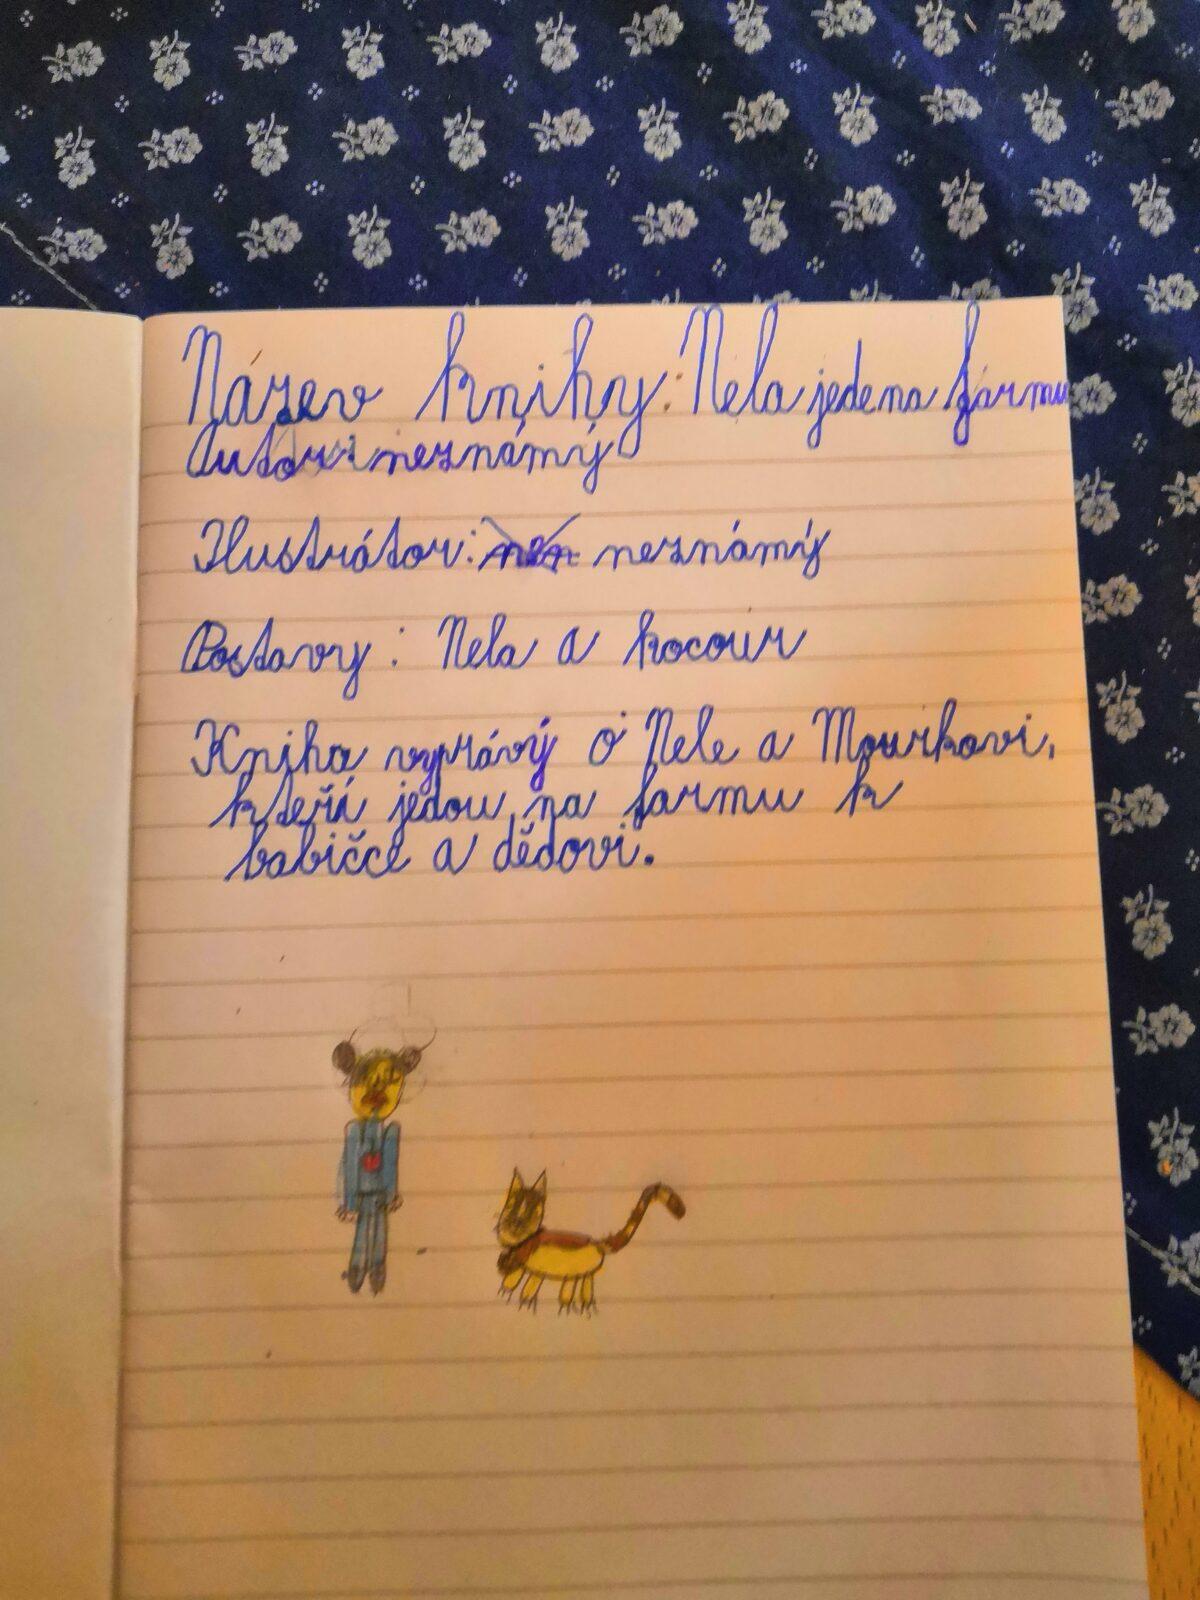 Název knihy: Nela jede na farmu
Autor: neznámý
Ilustrátor: neznámý
Postavy: Nela a kocour
Kniha vyprávý o Nele a Mourkovi,
kteří jedou na farmu k
babičce a dědovi.